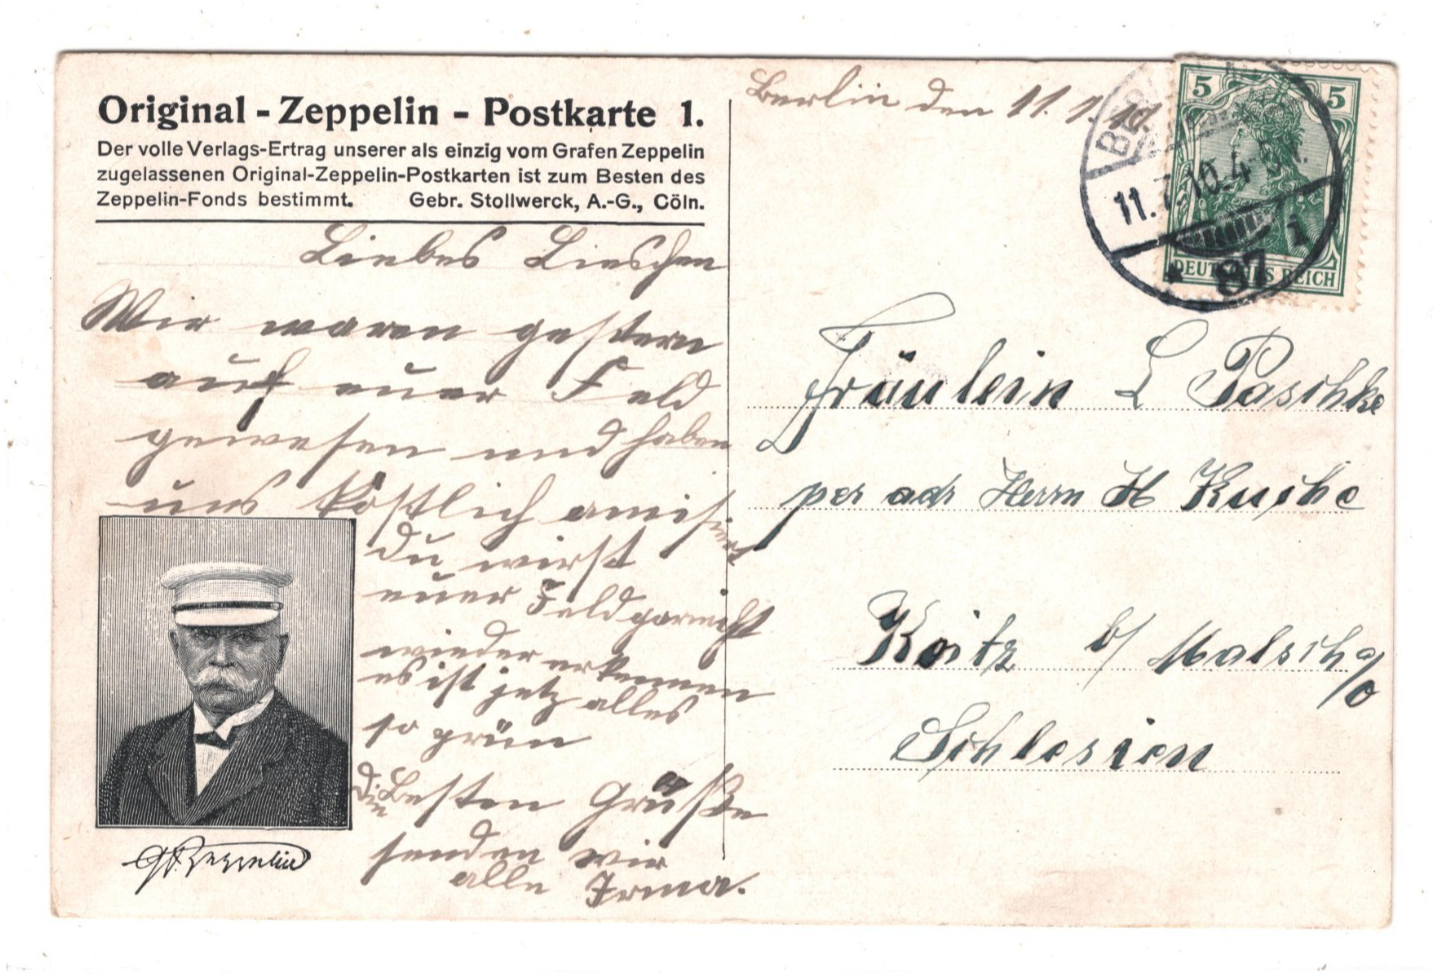 Original - Zeppelin - Postkarte 1.
Der volle Verlags-Ertrag unserer als einzig vom Grafen Zeppelin
zugelassenen Original-Zeppelin-Postkarten ist zum Besten des
Zeppelin-Fonds bestimmt. Gebr. Stollwerck, A.-G., Cöln.
Liebes Lieschen
Wir waren gestern
auf euer Feld
gewesen und haben
uns köstlich amisiert
du wirst
euer Feld garnicht
wieder erkennen
es ist jetz alles
so grün
die Besten Grüße
senden wir
alle Irma.
Gf. Zeppelin
Berlin den 11. 10.
5 5
DEUTSCHES REICH
BERLIN
11. 10.4
87
Fräulein L Paschke
per adr Herrn H Kuske
Koitz b/ Malsch a/o
Schlesien